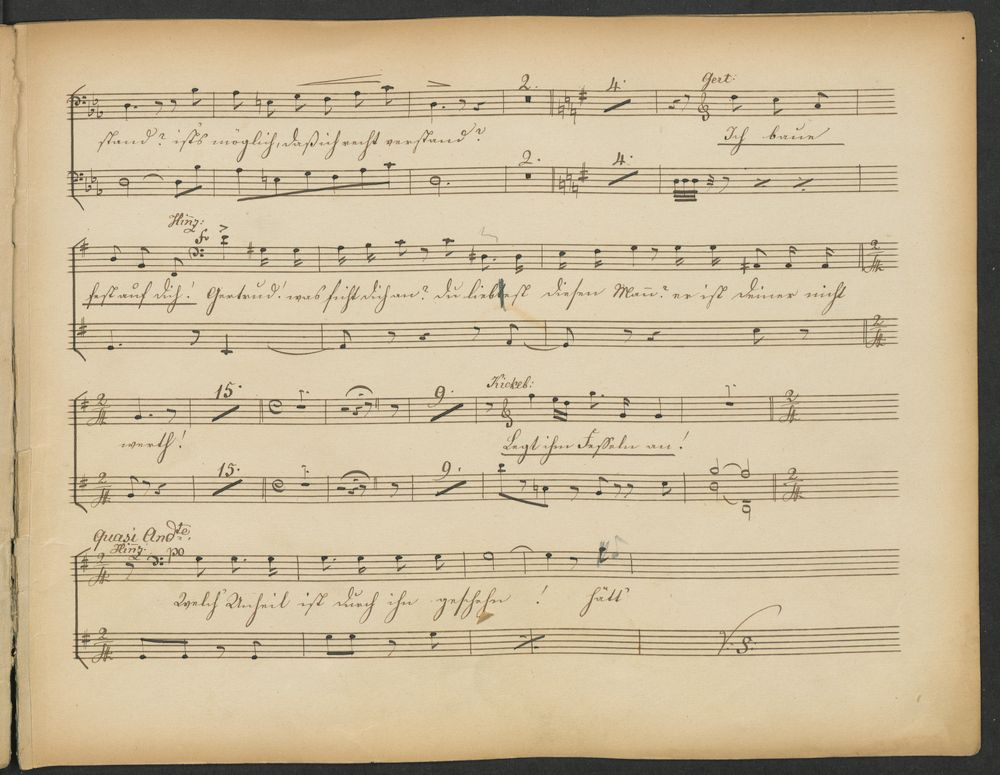 2. 4. Gert:
stand? ist's möglich, daß ich recht verstand? Ich baue
2. 4.
Hinz:
fo
fest auf dich! Gertrud! was ficht dich an? Du liebtest diesen Mann? er ist deiner nicht
15. 9. Kickeb:
werth! Legt ihm Fesseln an!
15. 9.
Quasi Andte.
Hinz: po
Welch' Unheil ist durch ihn geschehn! hätt'
V. S.